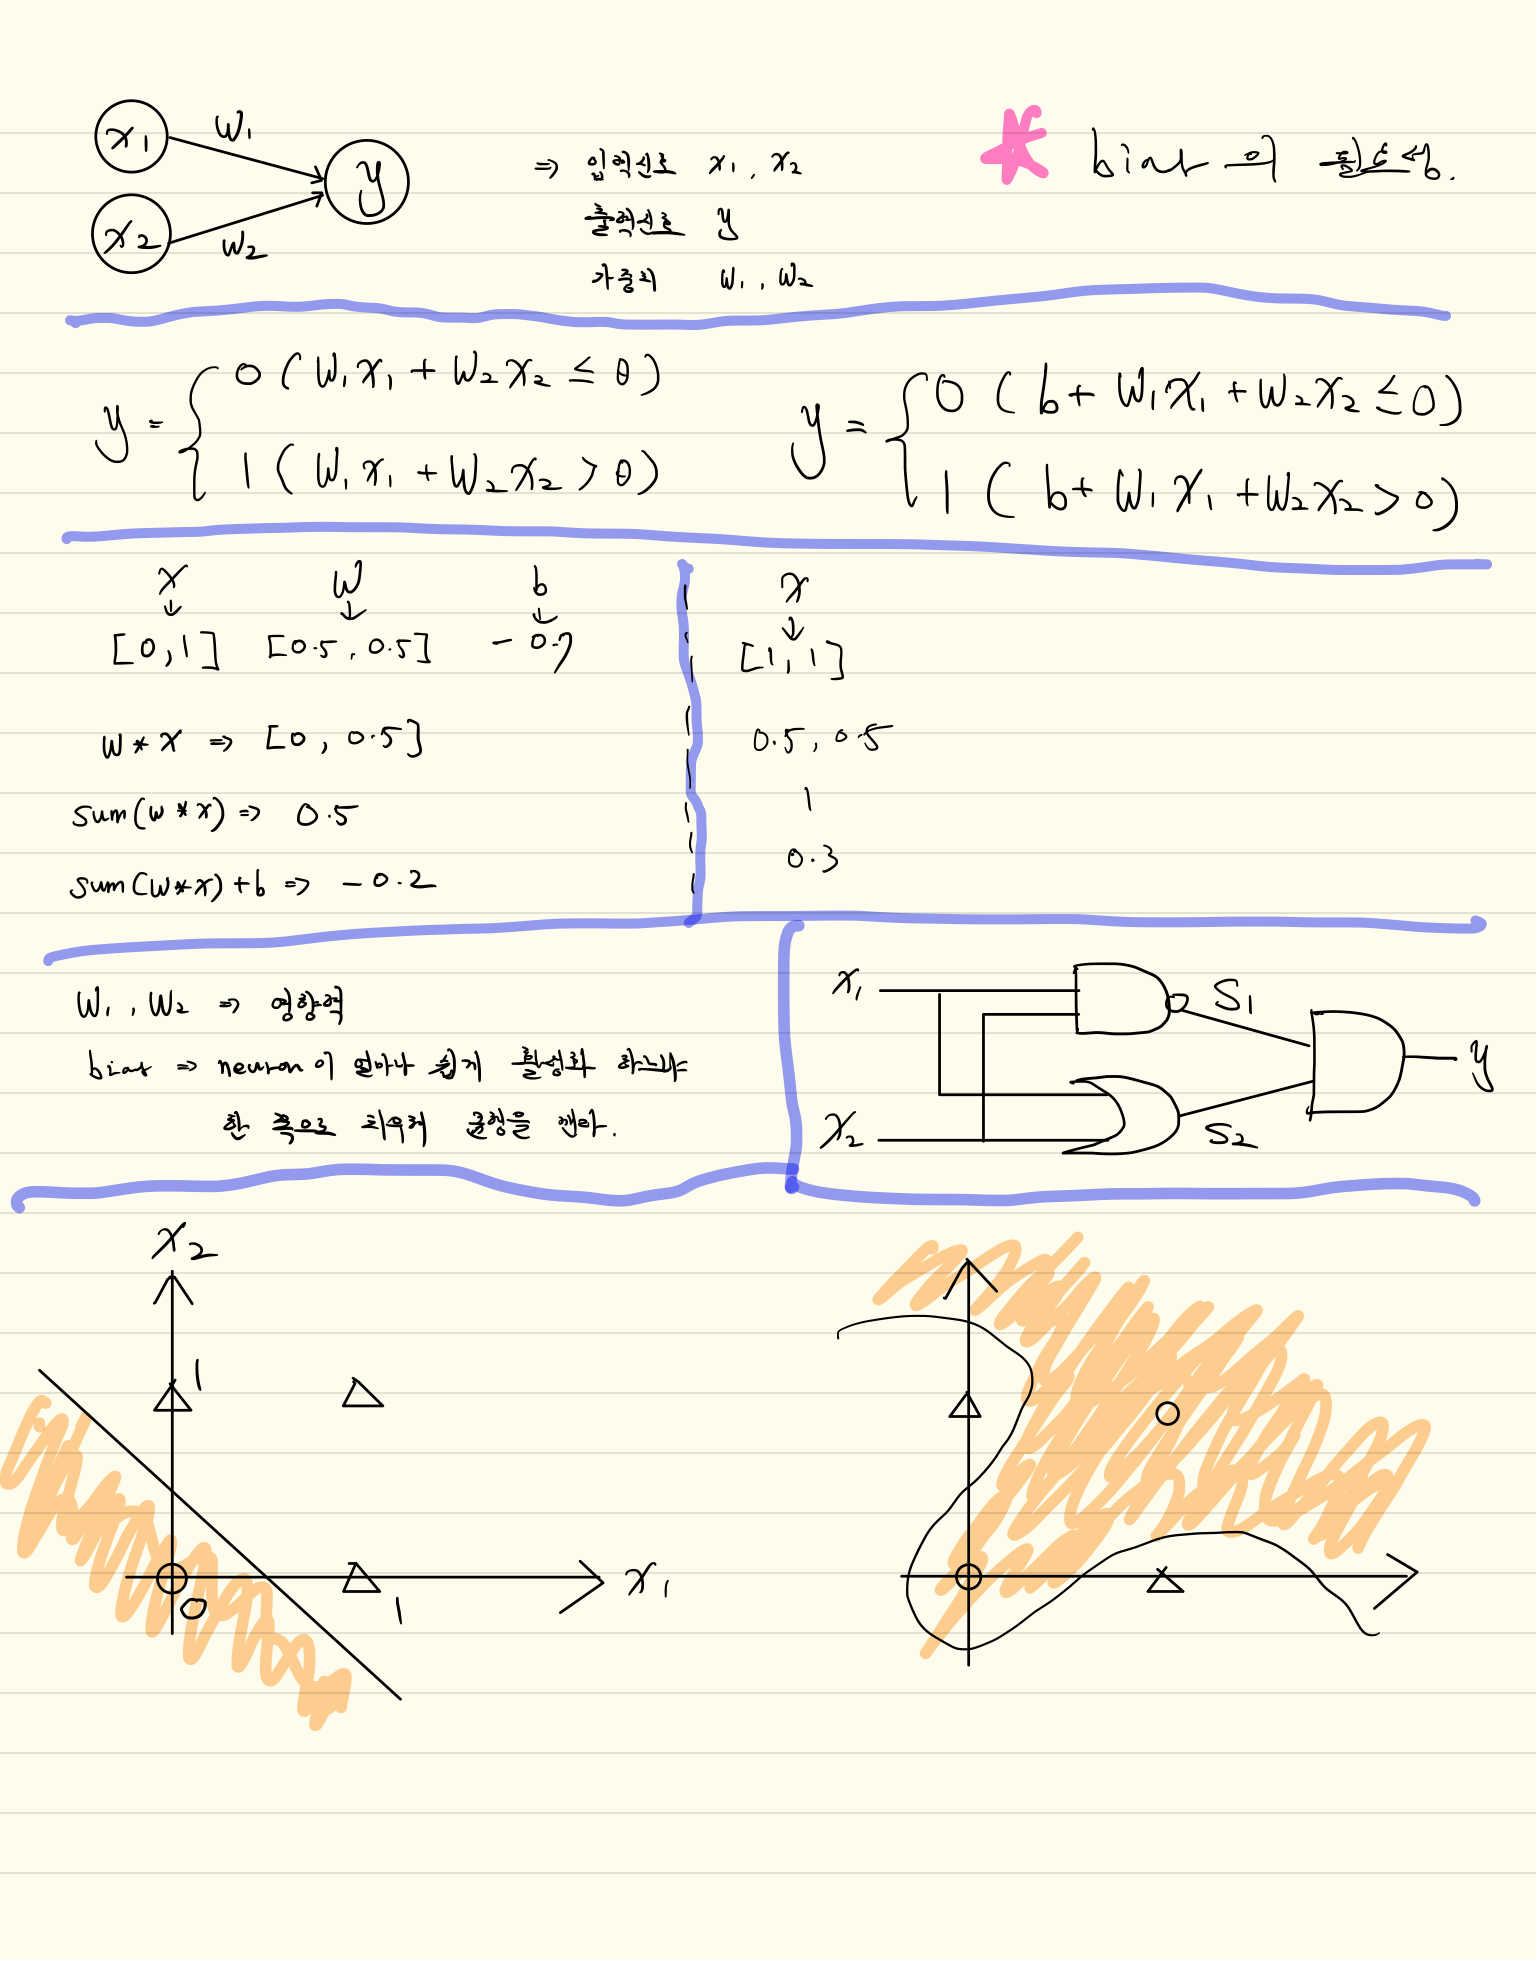 x1 w1 y
x2 w2
⇒ 입력신호 x1, x2
출력신호 y
가중치 w1, w2
* bias의 필요성.
y = { 0 (w1x1 + w2x2 ≤ θ)
1 (w1x1 + w2x2 > θ)
y = { 0 (b + w1x1 + w2x2 ≤ 0)
1 (b + w1x1 + w2x2 > 0)
x w b
↓ ↓ ↓
[0, 1] [0.5, 0.5] -0.7
w * x ⇒ [0, 0.5]
sum(w * x) ⇒ 0.5
sum(w * x) + b ⇒ -0.2
x
↓
[1, 1]
0.5, 0.5
1
0.3
w1, w2 ⇒ 영향력
bias ⇒ neuron이 얼마나 쉽게 활성화 하느냐는
한 쪽으로 치우쳐 균형을 깬다.
x1 S1 y
x2 S2
x2
1
0 1 x1